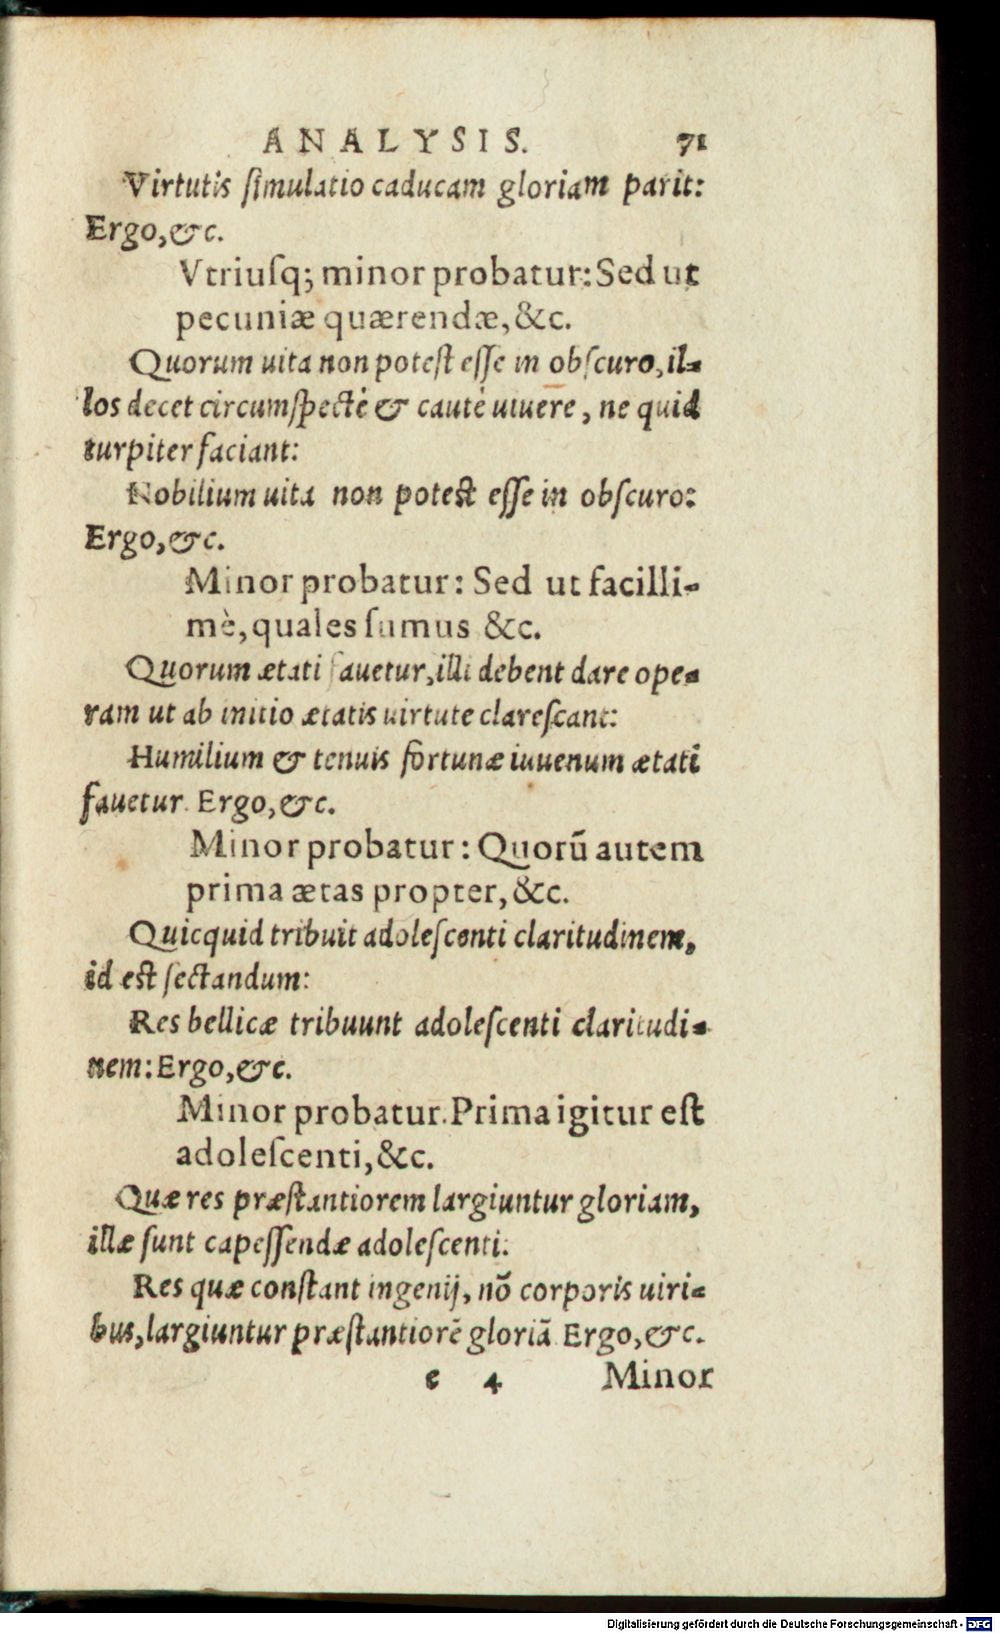 ANALYSIS. 71
Virtutis ſimulatio caducam gloriam parit:
Ergo, &c.
Vtriuſq; minor probatur: Sed ut
pecuniæ quærendæ, &c.
Quorum uita non poteſt eſſe in obſcuro, il-
los decet circumſpectè & cautè uiuere, ne quid
turpiter faciant:
Nobilium uita non poteſt eſſe in obſcuro:
Ergo, &c.
Minor probatur: Sed ut facilli-
mè, quales ſumus &c.
Quorum ætati fauetur, illi debent dare ope-
ram ut ab initio ætatis uirtute clareſcant:
Humilium & tenuis fortunæ iuuenum ætati
fauetur. Ergo, &c.
Minor probatur: Quorū autem
prima ætas propter, &c.
Quicquid tribuit adoleſcenti claritudinem,
id eſt ſectandum:
Res bellicæ tribuunt adoleſcenti claritudi-
nem: Ergo, &c.
Minor probatur. Prima igitur eſt
adoleſcenti, &c.
Quæ res præſtantiorem largiuntur gloriam,
illæ ſunt capeſſendæ adoleſcenti:
Res quæ conſtant ingenij, nō corporis uiri-
bus, largiuntur præſtantiorē gloriā. Ergo, &c.
e 4 Minor
Digitalisierung gefördert durch die Deutsche Forschungsgemeinschaft - DFG